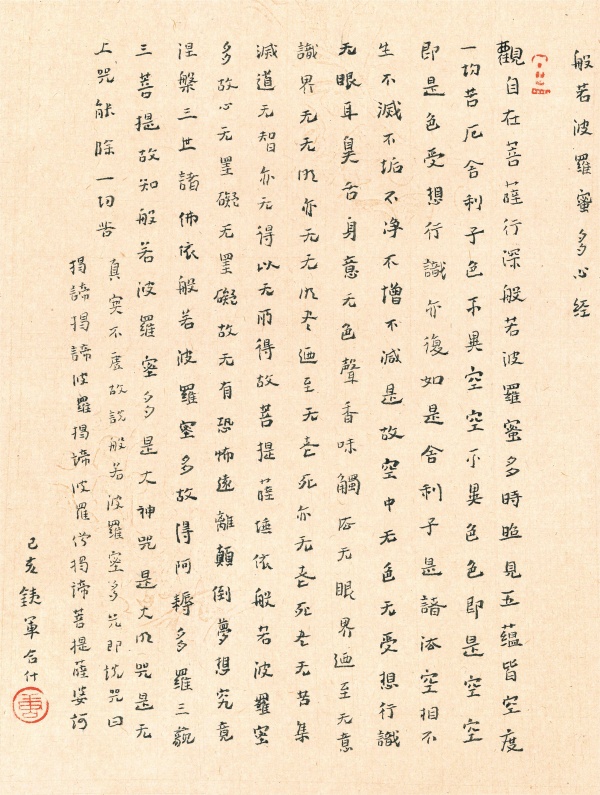 般若波羅蜜多心経
觀自在菩薩行深般若波羅蜜多時照見五蘊皆空度
一切苦厄舍利子色不異空空不異色色即是空空
即是色受想行識亦復如是舍利子是諸法空相不
生不滅不垢不净不增不減是故空中无色无受想行識
无眼耳鼻舌身意无色聲香味觸法无眼界迺至无意
識界无无明亦无无明尽迺至无老死亦无老死尽无苦集
滅道无智亦无得以无所得故菩提薩埵依般若波羅蜜
多故心无罣礙无罣礙故无有恐怖遠離顛倒夢想究竟
涅槃三世諸佛依般若波羅蜜多故得阿耨多羅三藐
三菩提故知般若波羅蜜多是大神咒是大明咒是无
上咒能除一切苦真实不虚故説般若波羅蜜多咒即説咒曰
揭諦揭諦波羅揭諦波羅僧揭諦菩提薩婆訶
己亥鉄軍合什